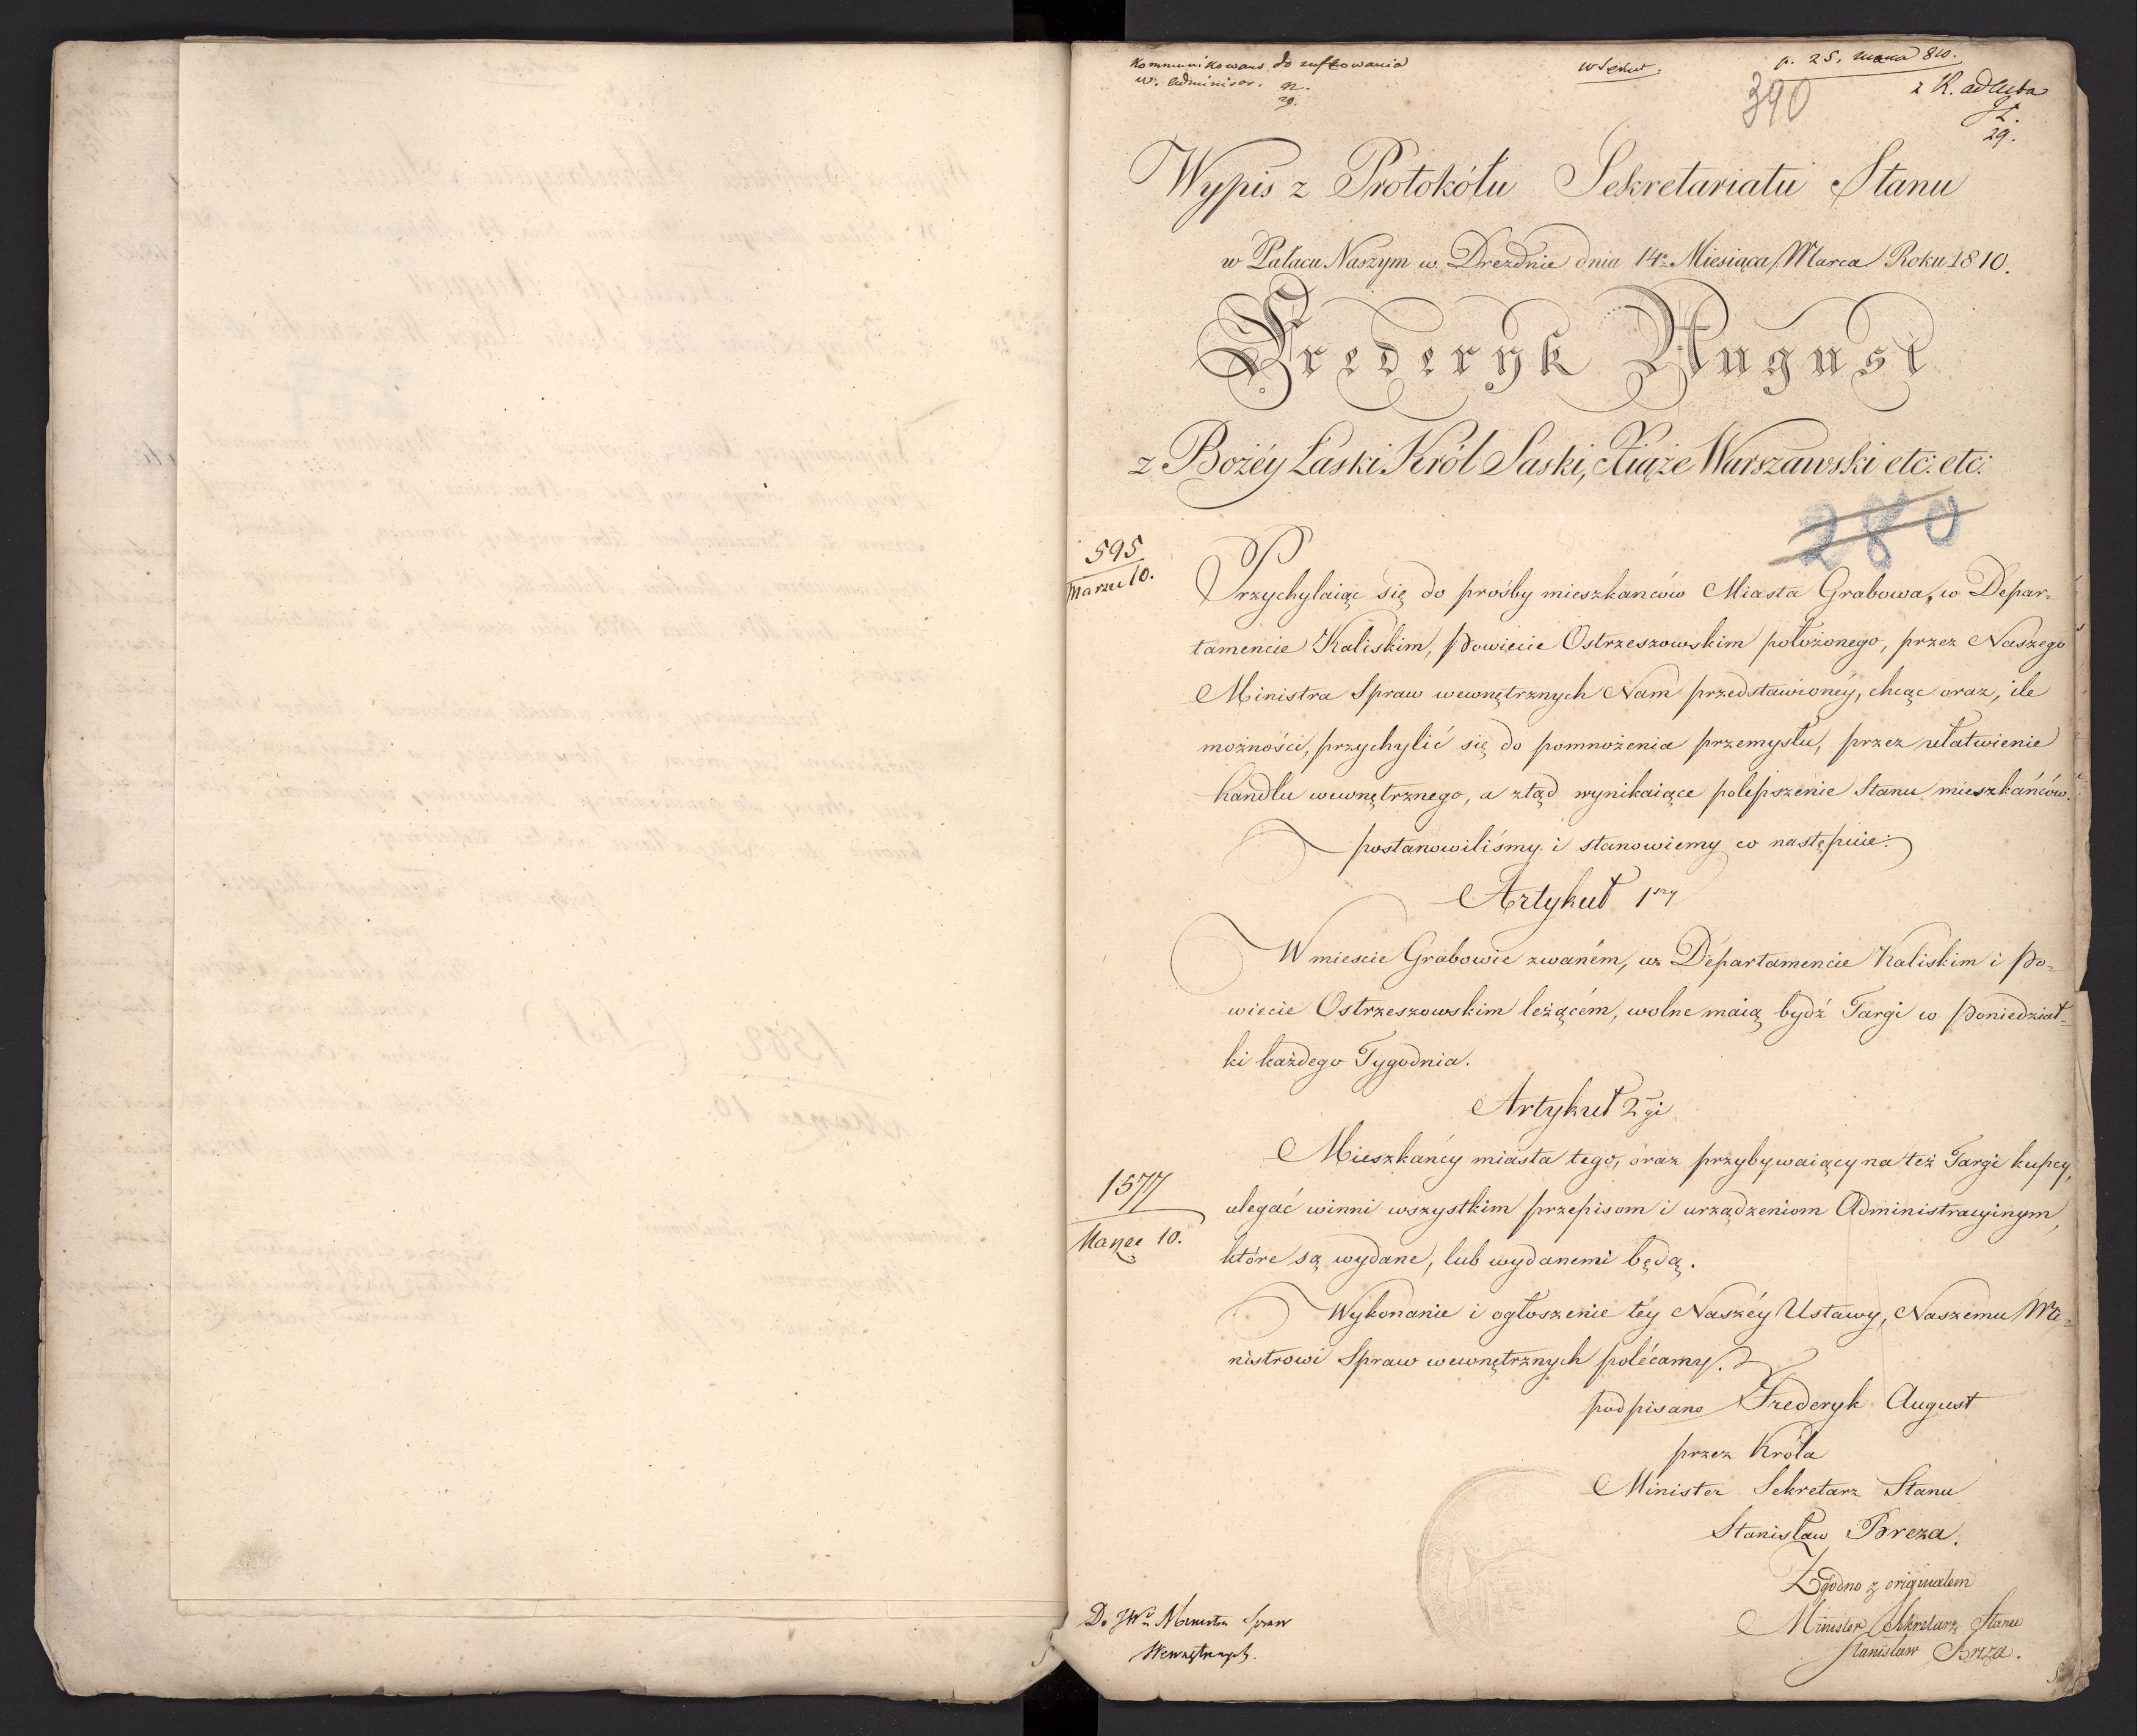 Kommunikowano do
w. adminisor. n.
29.
p. 25. marca 810.
390
z K. ad acta
29.
Wypis z Protokółu Sekretariatu Stanu
w Pałacu Naszym w Dreźdnie dnia 14º Miesiąca Marca Roku 1810.
Frederyk August
z Bożéy Łaski Król Saski, Xiąże Warszawski etc: etc:
280
595
Marzec 10.
Przychylaiąc się do prośby mieszkańców Miasta Grabowa, w Depar=
tamencie Kaliskim, Powiecie Ostrzeszowskim położonego, przez Naszego
Ministra Spraw wewnętrznych Nam przedstawionéy, chcąc oraz, ile
możności, przychylić się do pomnożenia przemysłu, przez ułatwienie
handlu wewnętrznego, a ztąd wynikaiące polepszenie Stanu mieszkańców.
postanowiliśmy i stanowiemy co następuie:
Artykuł 1szy
W miescie Grabowie zwaném, w Departamencie Kaliskim i Po=
wiecie Ostrzeszowskim leżącém, wolne maią bydź Targi w Poniedział=
ki każdego Tygodnia.
Artykuł 2gi
Mieszkańcy miasta tego, oraz przybywaiący na też Targi kupcy,
ulegać winni wszystkim przepisom i urządzeniom Administracyinym,
które są wydane, lub wydanemi będą.
1577
Marzec 10.
Wykonanie i ogłoszenie téy Naszéy Ustawy, Naszemu Mi=
nistrowi Spraw wewnętrznych polécamy.
podpisano Frederyk August
przez Króla
Minister Sekretarz Stanu
Stanisław Breza.
Zgodno z originałem
Minister Sekretarz Stanu
Stanisław Breza.
Do JWº Ministra Spraw
Wewnętrznych.